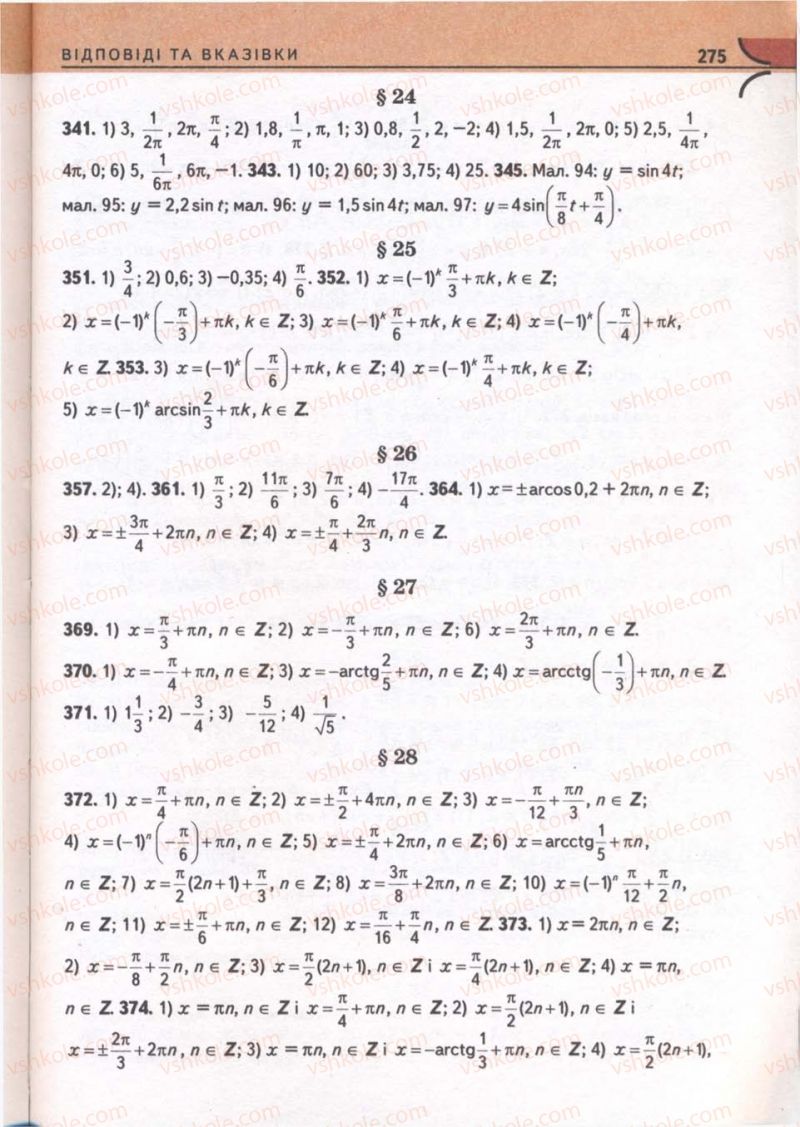 ВІДПОВІДІ ТА ВКАЗІВКИ 275
§ 24
341. 1) 3, 1/(2π), 2π, π/4; 2) 1,8, 1/π, π, 1; 3) 0,8, 1/2, 2, −2; 4) 1,5, 1/(2π), 2π, 0; 5) 2,5, 1/(4π),
4π, 0; 6) 5, 1/(6π), 6π, −1. 343. 1) 10; 2) 60; 3) 3,75; 4) 25. 345. Мал. 94: y = sin4t;
мал. 95: y = 2,2sin t; мал. 96: y = 1,5sin4t; мал. 97: y = 4sin(π/8 t + π/4).
§ 25
351. 1) 3/4; 2) 0,6; 3) −0,35; 4) π/6. 352. 1) x = (−1)^k π/3 + πk, k ∈ Z;
2) x = (−1)^k (−π/3) + πk, k ∈ Z; 3) x = (−1)^k π/6 + πk, k ∈ Z; 4) x = (−1)^k (−π/4) + πk,
k ∈ Z. 353. 3) x = (−1)^k (−π/6) + πk, k ∈ Z; 4) x = (−1)^k π/4 + πk, k ∈ Z;
5) x = (−1)^k arcsin 2/3 + πk, k ∈ Z.
§ 26
357. 2); 4). 361. 1) π/3; 2) 11π/6; 3) 7π/6; 4) −17π/4. 364. 1) x = ±arccos0,2 + 2πn, n ∈ Z;
3) x = ±3π/4 + 2πn, n ∈ Z; 4) x = ±π/4 + 2π/3 n, n ∈ Z.
§ 27
369. 1) x = π/3 + πn, n ∈ Z; 2) x = −π/3 + πn, n ∈ Z; 6) x = 2π/3 + πn, n ∈ Z.
370. 1) x = −π/4 + πn, n ∈ Z; 3) x = −arctg 2/5 + πn, n ∈ Z; 4) x = arcctg(−1/3) + πn, n ∈ Z.
371. 1) 1 1/3; 2) −3/4; 3) −5/12; 4) 1/√5.
§ 28
372. 1) x = π/4 + πn, n ∈ Z; 2) x = ±π/2 + 4πn, n ∈ Z; 3) x = −π/12 + πn/3, n ∈ Z;
4) x = (−1)^n (−π/6) + πn, n ∈ Z; 5) x = ±π/4 + 2πn, n ∈ Z; 6) x = arcctg 1/5 + πn,
n ∈ Z; 7) x = π/2 (2n+1) + π/3, n ∈ Z; 8) x = 3π/8 + 2πn, n ∈ Z; 10) x = (−1)^n π/12 + π/2 n,
n ∈ Z; 11) x = ±π/6 + πn, n ∈ Z; 12) x = π/16 + π/4 n, n ∈ Z. 373. 1) x = 2πn, n ∈ Z;
2) x = −π/8 + π/2 n, n ∈ Z; 3) x = π/2 (2n+1), n ∈ Z і x = π/4 (2n+1), n ∈ Z; 4) x = πn,
n ∈ Z. 374. 1) x = πn, n ∈ Z і x = π/4 + πn, n ∈ Z; 2) x = π/2 (2n+1), n ∈ Z і
x = ±2π/3 + 2πn, n ∈ Z; 3) x = πn, n ∈ Z і x = −arctg 1/3 + πn, n ∈ Z; 4) x = π/2 (2n+1),